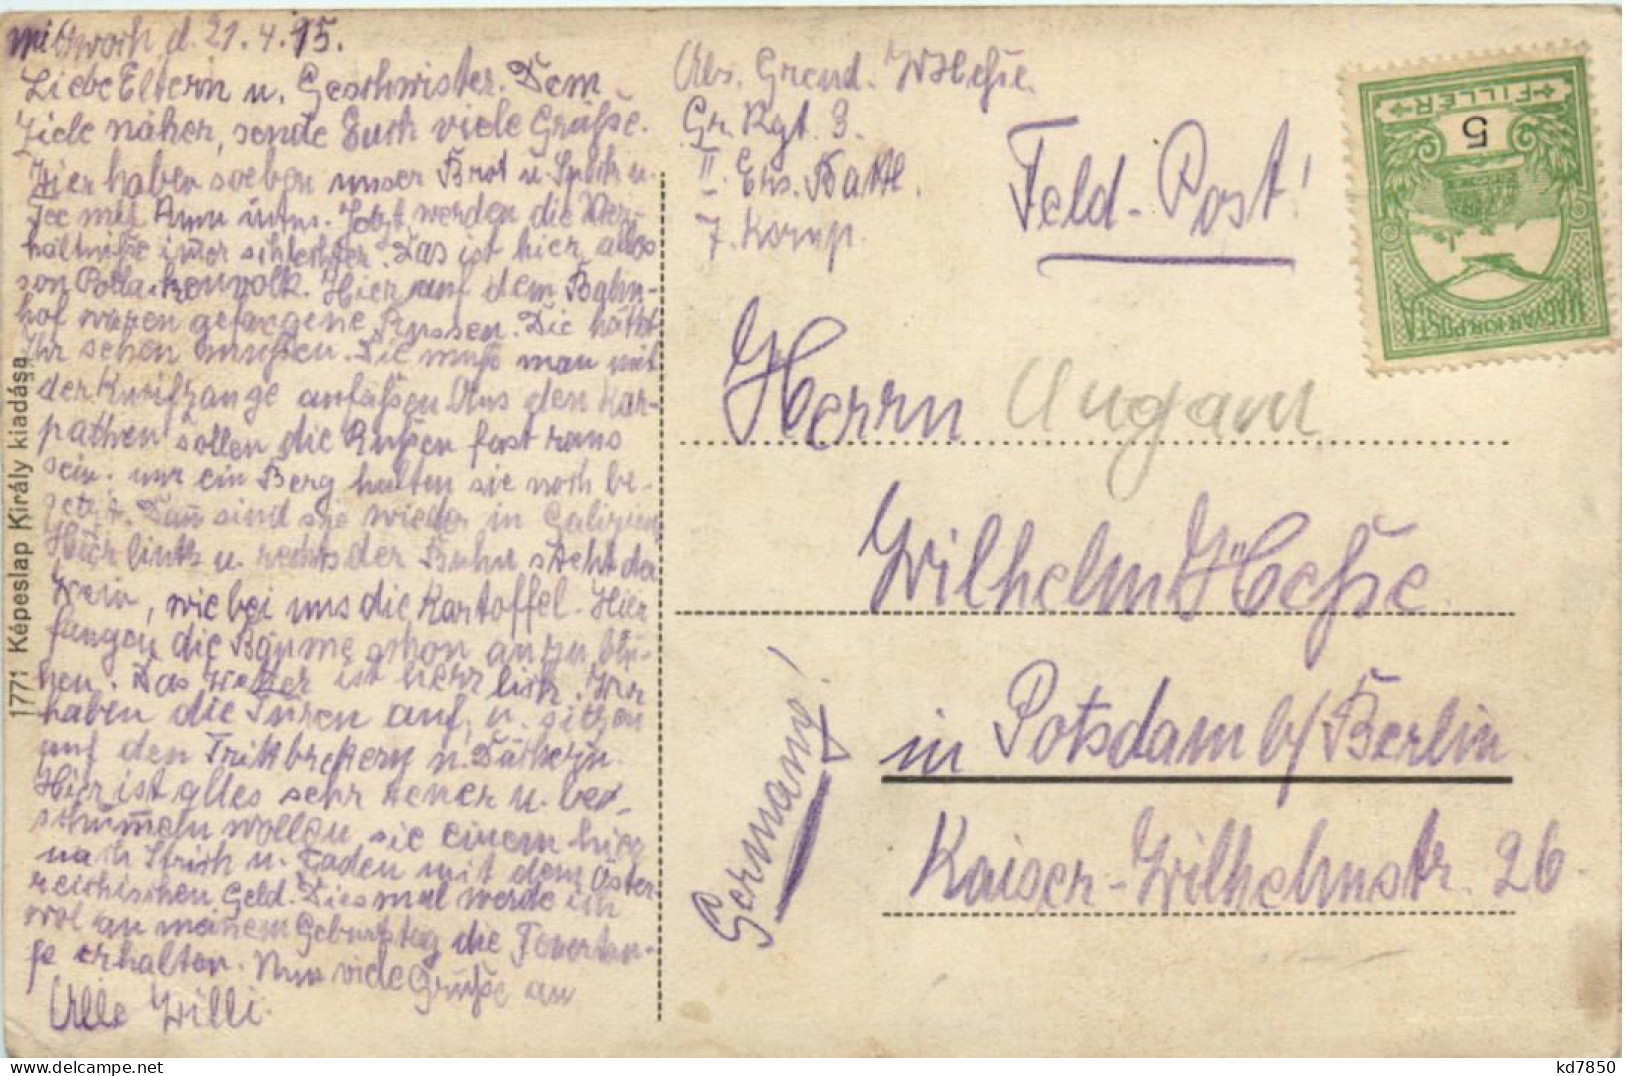 Mittwoch d. 21.4.15.
Liebe Eltern u. Geschwister. Dem
Ziele näher, sende Euch viele Grüße.
Hier haben soeben unser Brot u. Speck u.
Tee mit Rum intus. Jetzt werden die Ver-
hältniße imer schlechter. Das ist hier alles
son Pollackenvolk. Hier auf dem Bahn-
hof waren gefangene Russen. Die hättet
Ihr sehen müßen. Die muß man mit
der Kneifzange anfaßen. Aus den Kar-
pathen sollen die Rußen fast raus
sein. nur ein Berg halten sie noch be-
setzt. Dan sind sie wieder in Galizien
Hier links u. rechts der Bahn steht der
Wein, wie bei uns die Kartoffel. Hier
fangen die Bäume schon an zu blü-
hen. Das Wetter ist herrlich. Wir
haben die Türen auf, u. sitzen
auf den Trittbrettern u. Dächern.
Hier ist alles sehr teuer u. be-
schumeln wollen sie einem hier
nach Strich u. Faden mit dem Öster-
reichischen Geld. Diesmal werde ich
wol an meinem Geburtstag die Feuertau-
fe erhalten. Nun viele Grüße an
Alle Willi.
1771 Képeslap Király kiadása
Abs. Grend. W Heße.
Gr. Rgt. 3.
II. Ers. Batl.
7. Komp.
Feld-Post!
5
FILLER
MAGYAR KIR. POSTA
Herrn Ungarn
Wilhelm Heße
in Potsdam b/Berlin
Kaiser-Wilhelmstr. 26.
Germany!
kd7850